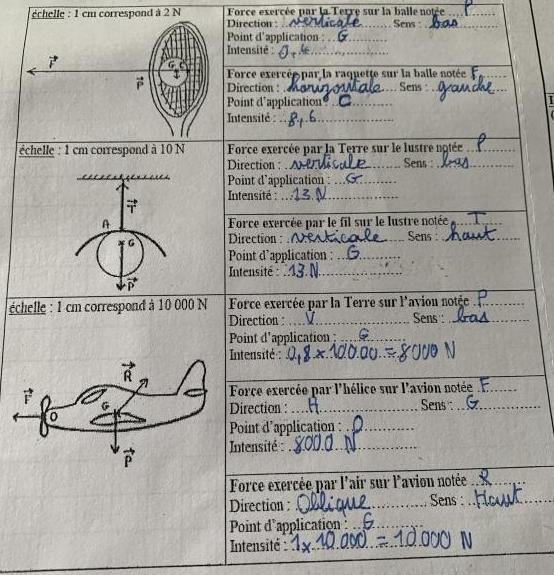 échelle : 1 cm correspond à 2 N
F
G C
P
Force exercée par la Terre sur la balle notée P
Direction : verticale Sens : bas
Point d'application : G
Intensité : 0,4
Force exercée par la raquette sur la balle notée F
Direction : horizontale Sens : gauche
Point d'application C
Intensité : 8,6
échelle : 1 cm correspond à 10 N
T
A
G
P
Force exercée par la Terre sur le lustre notée P
Direction : verticale Sens : bas
Point d'application : G
Intensité : 13 N
Force exercée par le fil sur le lustre notée T
Direction : verticale Sens : haut
Point d'application : G
Intensité : 13 N
échelle : 1 cm correspond à 10 000 N
R
F
O
G
P
Force exercée par la Terre sur l'avion notée P
Direction : V Sens : bas
Point d'application : G
Intensité : 0,8 x 10000 = 8000 N
Force exercée par l'hélice sur l'avion notée F
Direction : H Sens : G
Point d'application : O
Intensité : 8000 N
Force exercée par l'air sur l'avion notée R
Direction : Oblique Sens : Haut
Point d'application : G
Intensité : 1 x 10.000 = 10.000 N